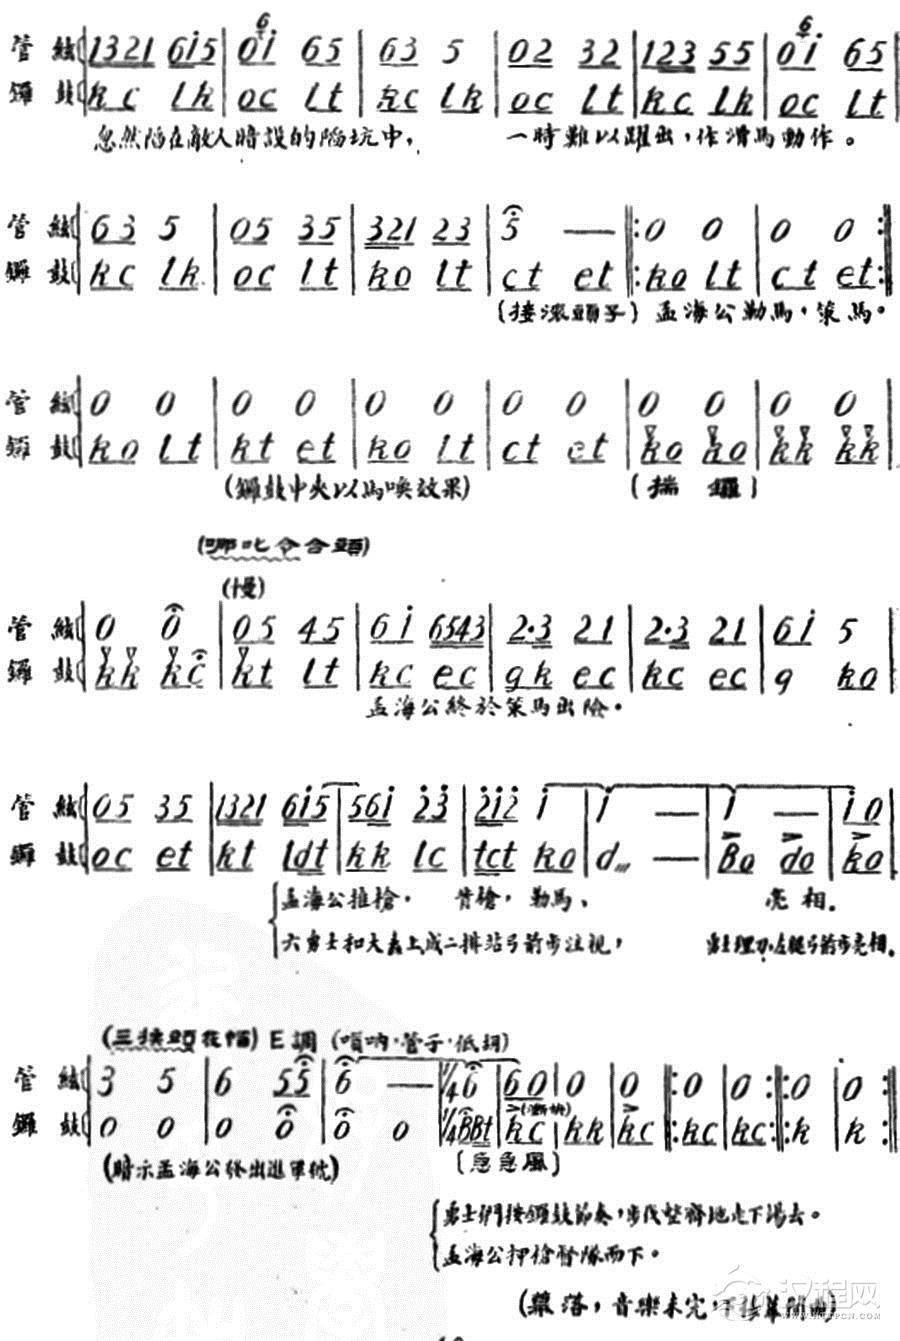 管絃 1321 6i5 | 0i 65 | 63 5 | 02 32 | 123 55 | 0i 65 |
鑼鼓 kc lk | oc lt | kc lk | oc lt | kc lk | oc lt |
忽然陷在敵人暗設的陷坑中， 一時難以躍出，作滑馬動作。
管絃 63 5 | 05 35 | 321 23 | 5 — |: 0 0 | 0 0 :|
鑼鼓 kc lk | oc lt | ko lt | ct et |: ko lt | ct et :|
(接滾頭子) 孟海公勒馬，策馬。
管絃 0 0 | 0 0 | 0 0 | 0 0 | 0 0 | 0 0 |
鑼鼓 ko lt | kt et | ko lt | ct et | ko ko | kk kk |
(鑼鼓中夾以馬喚效果) (揣鑼)
(哪叱令合頭)
(慢)
管絃 0 0 | 05 45 | 6i 6543 | 2·3 21 | 2·3 21 | 6i 5 |
鑼鼓 kk kc | kt lt | kc ec | gk ec | kc ec | g ko |
孟海公終於策馬出險。
管絃 05 35 | 1321 6i5 | 56i 23 | 2i2 i | i — | i — | i0 |
鑼鼓 oc et | kt ldt | kk lc | tct ko | d — | Bo do | ko |
孟海公推槍， 背槍，勒馬、 亮相.
六勇士和大纛上成二排站弓箭步注視， 勇士理刀，左腿弓箭步亮相.
(三換頭花帽) E調 (嗩吶·管子·低胡)
管絃 3 5 | 6 55 | 6 — | 1/4 6 | 60 | 0 | 0 |: 0 | 0 :|: 0 | 0 :|
鑼鼓 0 0 | 0 0 | 0 0 | 1/4 BBt | kc | kk | kc |: kc | kc :|: k | k :|
(暗示孟海公發出進軍號) (急急風)
勇士們按鑼鼓節奏，步伐整齊地走下場去。
孟海公押槍督隊而下。
(幕落，音樂未完，下接幕間曲)
汉程网